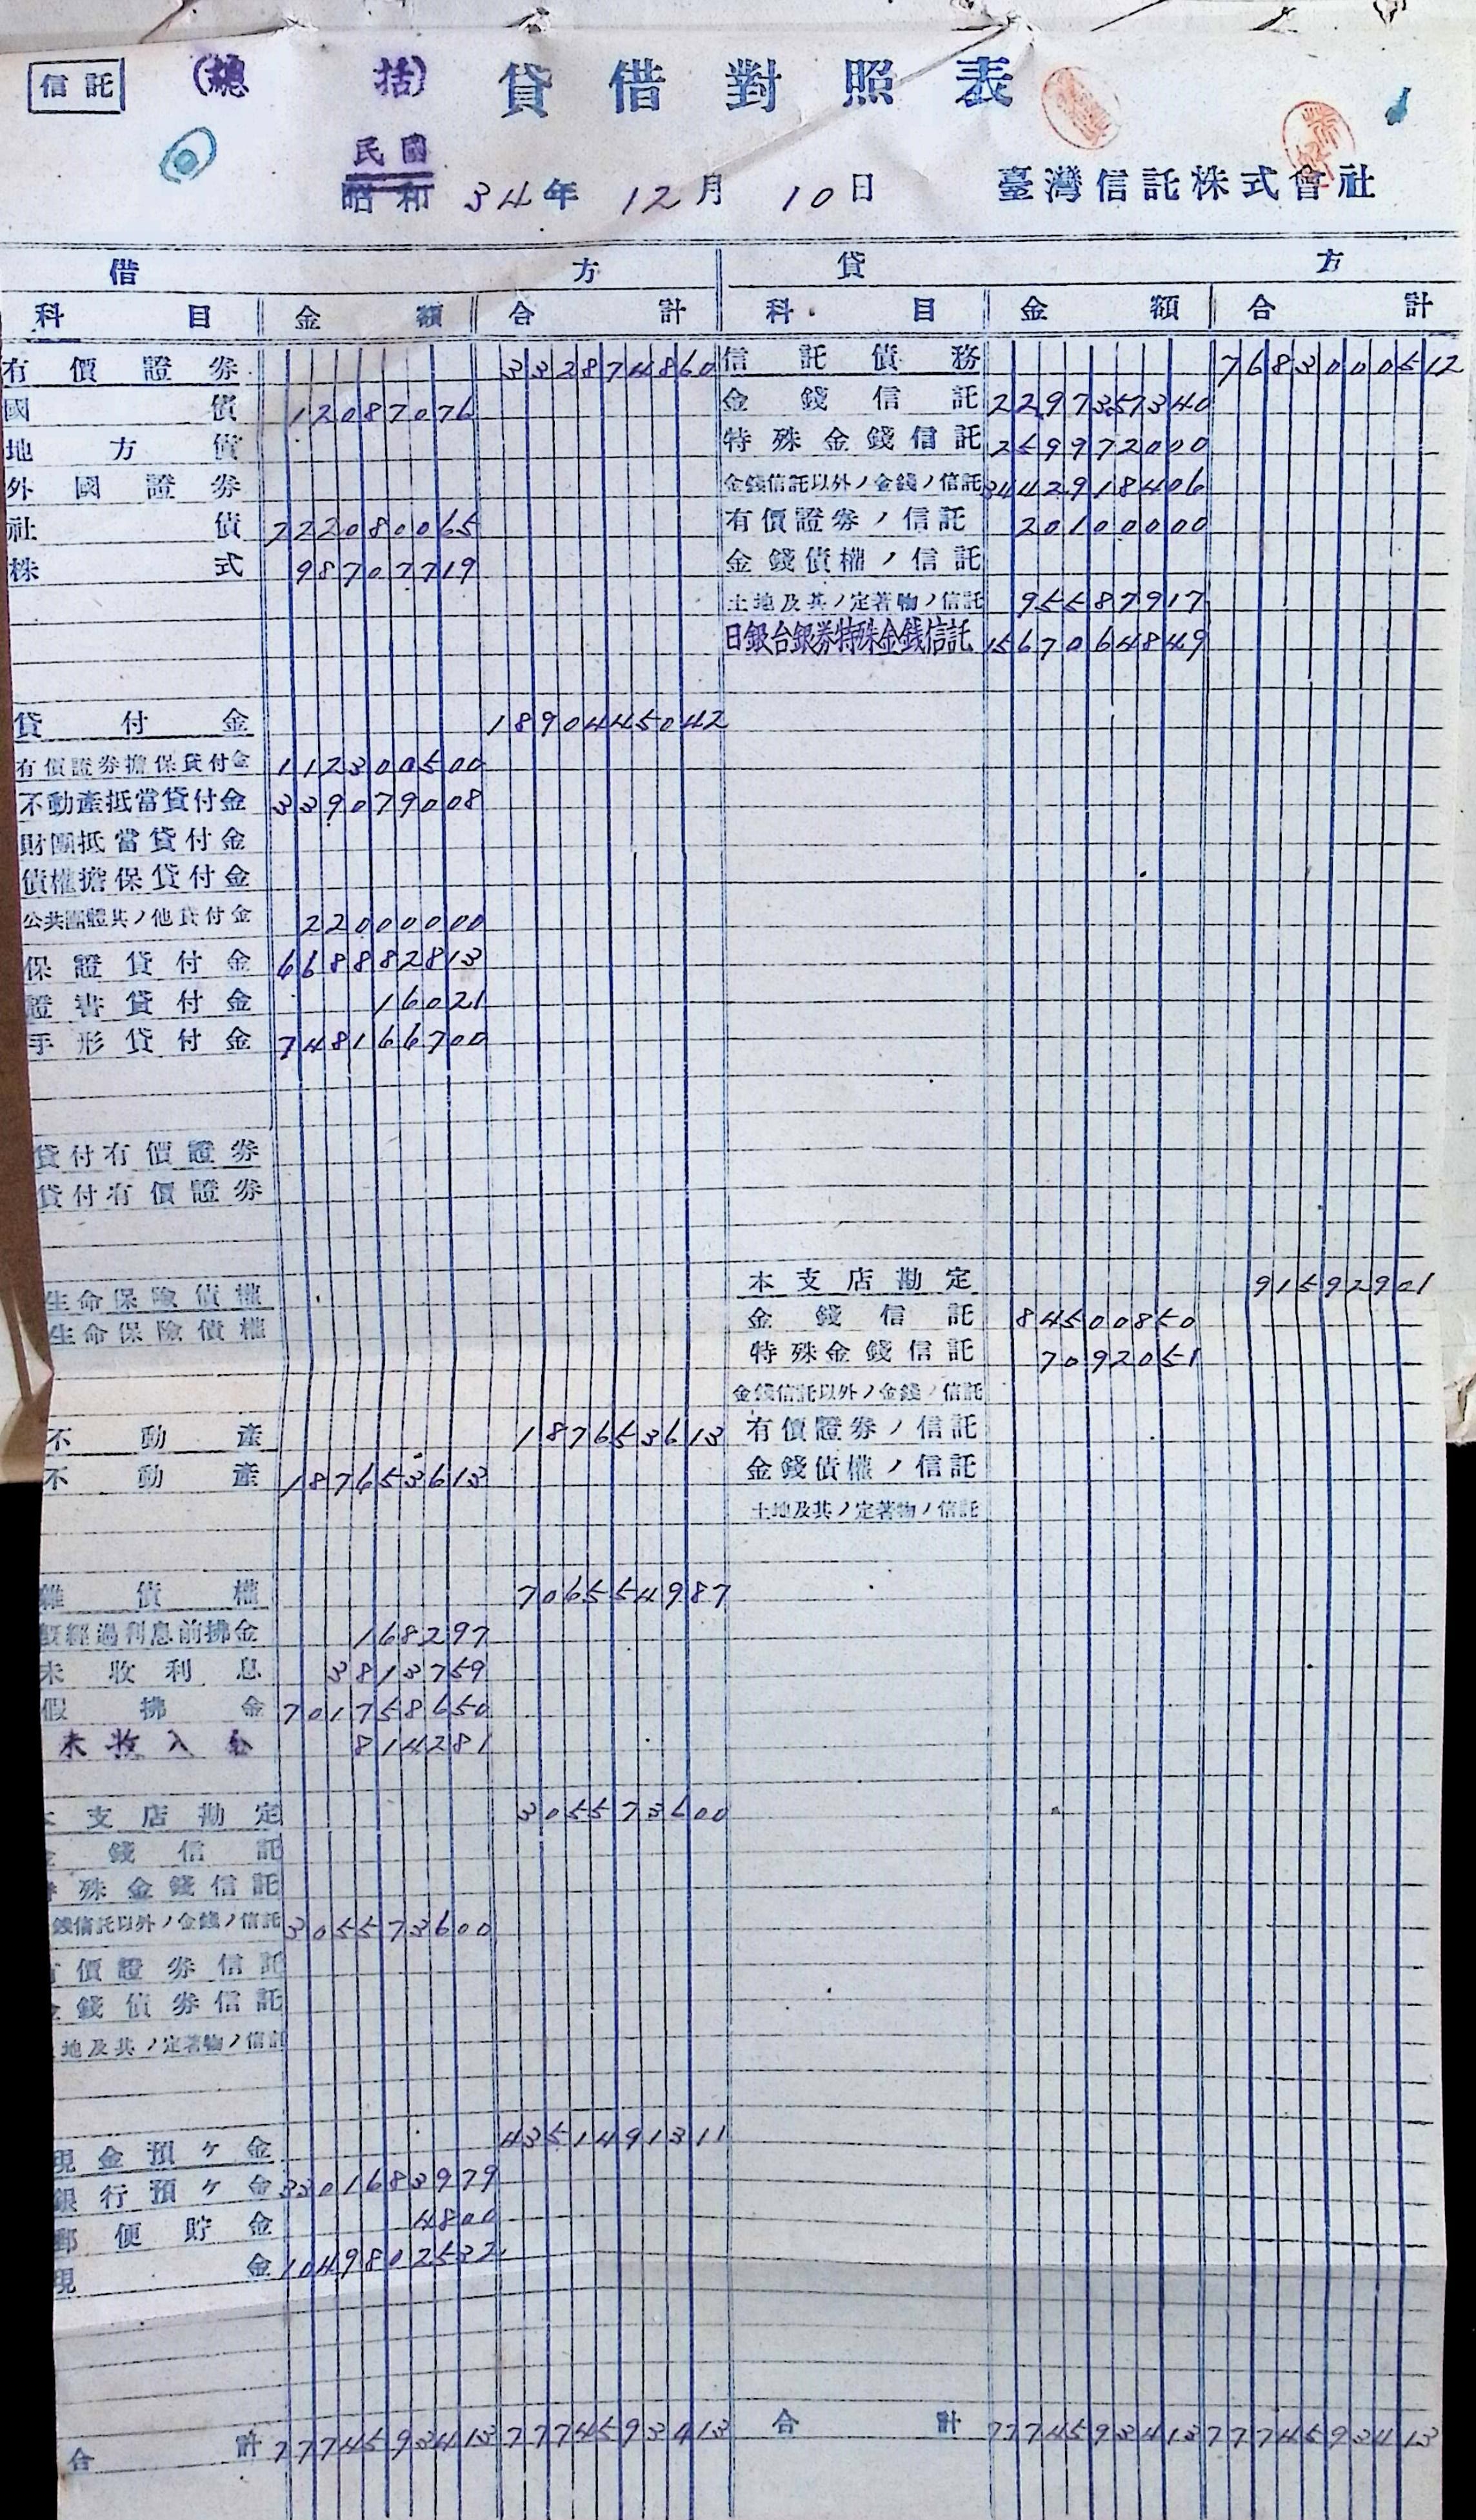 信託
(總括) 貸借對照表
民國
昭和 34年 12月 10日
臺灣信託株式會社
借方 貸方
科目 金額 合計 科目 金額 合計
有價證券 332874860 信託債務 7683000512
國債 12087076 金錢信託 2297357340
地方債 特殊金錢信託 259972000
外國證券 金錢信託以外ノ金錢ノ信託 3442918406
社債 222080065 有價證券ノ信託 20100000
株式 98707719 金錢債權ノ信託
土地及其ノ定著物ノ信託 95587917
日銀台銀券特殊金錢信託 1567064849
貸付金 1890445042
有價證券擔保貸付金 112300500
不動產抵當貸付金 339079008
財團抵當貸付金
債權擔保貸付金
公共團體其ノ他貸付金 22000000
保證貸付金 668882813
證書貸付金 16021
手形貸付金 748166700
貸付有價證券
貸付有價證券
生命保險債權 本支店勘定 91592901
生命保險債權 金錢信託 84500850
特殊金錢信託 7092051
金錢信託以外ノ金錢ノ信託
不動產 187653613 有價證券ノ信託
不動產 187653613 金錢債權ノ信託
土地及其ノ定著物ノ信託
雜債權 706554987
既經過利息前拂金 168297
未收利息 3813759
假拂金 701758650
未收入金 814281
本支店勘定 305573600
金錢信託
特殊金錢信託
錢信託以外ノ金錢ノ信託 305573600
有價證券信託
金錢債券信託
地及其ノ定著物ノ信託
現金預ケ金 4351491311
銀行預ケ金 3301683979
郵便貯金 4800
現金 1049802532
合計 7774593413 7774593413 合計 7774593413 7774593413